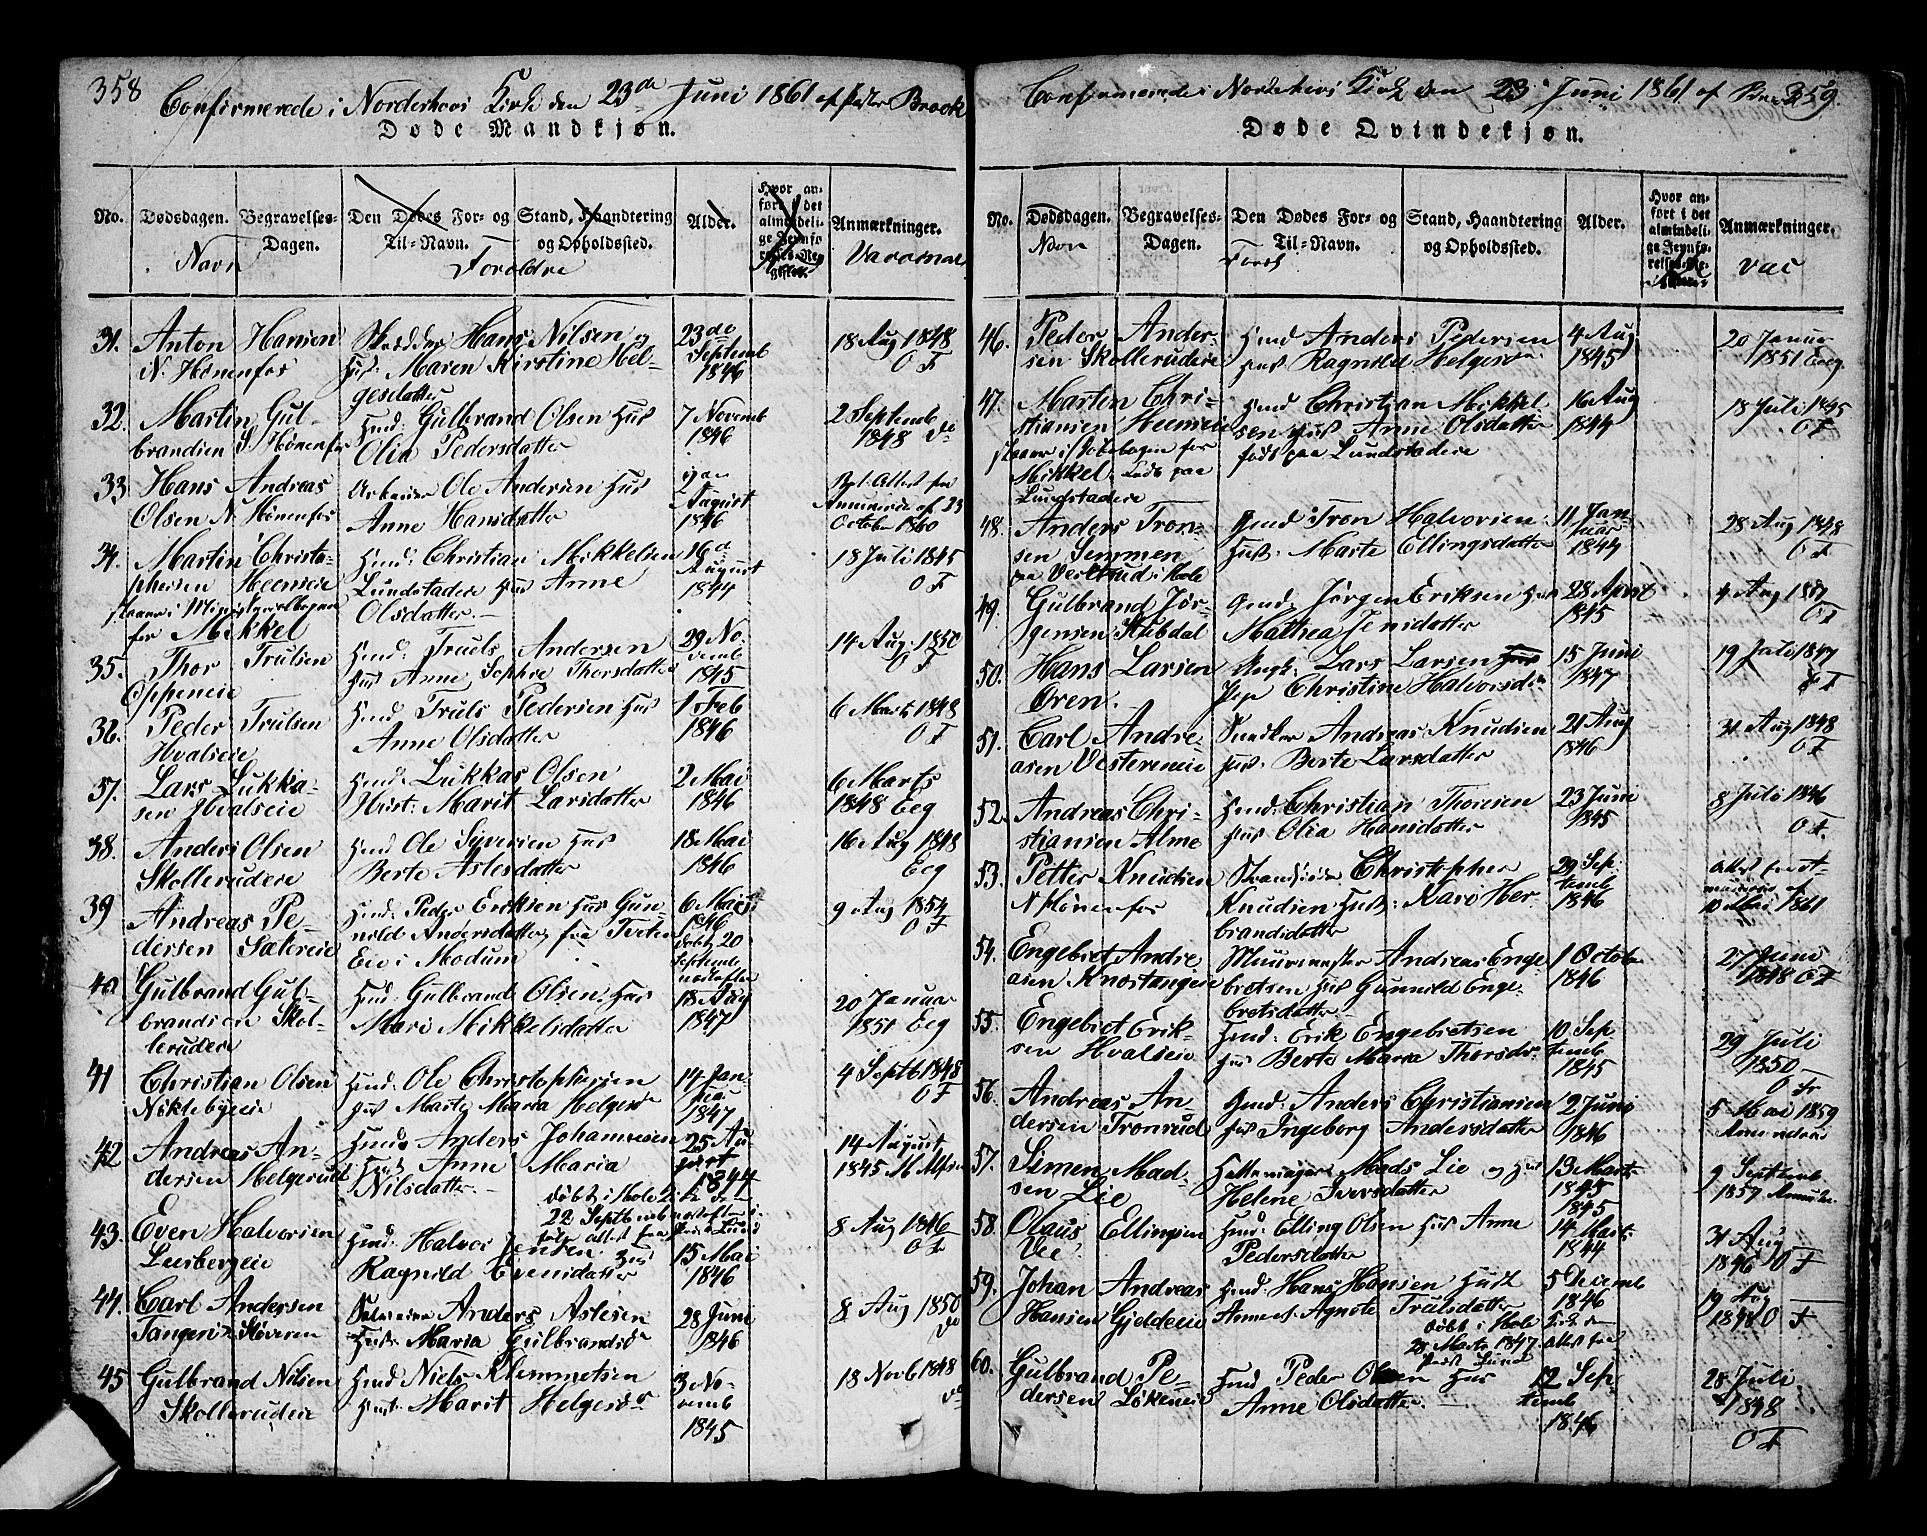 358
Confirmerede i Norderhovs Kirke den 23de Juni 1861 af Pastor Brock
Døde Mandkjøn.
No.
Dødsdagen.
Begravelses-
Dagen.
Den Dødes For- og
Til-Navn.
Stand, Haandtering
og Opholdssted.
Alder.
Hvor an-
ført i det
almindeli-
ge Jevnfø
Anmærkninger.
Navn
Forældre
31. Anton Hansen
N. Hønenfos
Hans Nilsen og
Hus: Maren Kirstine Hel-
gesdatter
23de
Septemb
1846
18 Aug 1848
O F
32. Martin Gul-
brandsen S. Hønenfos
Hmd: Gulbrand Olsen Hus
Olia Pedersdatter
7 Novemb
1846
2 Septemb
1848 do
33 Hans Andreas
Olsen N Hønenfos
Arbeider Ole Andersen Hus
Anne Hansdatter
August
1846
October 1860
34. Martin Christo-
phersen Heenseie
for Mikkel
Hmd: Christian Mikkelsen
Lundstadere Hus Anne
Olsdatter.
16d
August
1844
18 Juli 1845
O F
35. Thor Trulsen
Oppeneie
Hmd: Truls Andersen
Hus Anne Sophie Thorsdatter
29 No-
vemb
1845
14 Aug. 1850
O F
36. Peder Trulsen
Hvalseie
Hmd Truls Pedersen Hus
Anne Olsdatter
1 Feb
1846
6 Marts 1848
O F
37. Lars Lukka-
sen Hvalseie
Hmd: Lukkas Olsen
Hust: Marit Larsdatter
2 Mai
1846
6 Marts
1848 Eeg
38. Anders Olsen
Skollerudere
Hmd Ole Syversen Hus
Berte Aslesdatter
18 Mai
1846
16 Aug 1848
Eeg
39 Andreas Pe-
dersen Sætereie
Hmd: Peder Eriksen Hus Gun-
nild Andersdatter fra Tveten
Eie i Modum
6 Marts
1846
døbt 20
Septemb
9 Aug 1854
O F
40 Gulbrand Gul-
brandsen Skol-
lerudere
Hmd: Gulbrand Olsen Hus
Mari Mikkelsdatter
18 Aug
1847
20 Januar
1851 Eeg
41 Christian Olsen
Niklebyeie
Hmd: Ole Christophersen
Hus Marte Maria Helgesd
14 Jan-
uar
1847
4 Septb 1848
O F
42 Andreas An-
dersen Helgerud
Hmd: Anders Johannesen
Hust Anne Maria
Nilsdatter.
døbt i Hole Kirke den
22 Septemb
25 Au-
gust
1844
14 August
1845
43. Even Halvorsen
Leesbergeie
Hmd: Halvor Jensen Hus
Ragnild Evensdatter
15 Mai
1846
8 Aug 1846
O F
44. Carl Andersen
Tangen
Anders Aslesen
Hust: Maria Gulbrandsd
28 Juni
1846
8 Aug 1850
do
45 Gulbrand Nilsen
Skollerudeie
Hmd Niels Klemmetsen
Hust: Marit Helgesd
3 No-
vemb
1845
18 Novb 1848
do
Confirmerede i Norderhovs Kirke den 23 Juni 1861 af
359.
Døde Qvindekjøn.
No.
Dødsdagen.
Begravelses-
Dagen.
Den Dødes For- og
Til-Navn.
Stand, Haandtering
og Opholdssted.
Alder.
Hvor an-
ført i det
almindeli-
ge Jevnfø-
Anmærkninger.
Navn
vac
46. Peder Ander-
sen Skollerudere
Hmd Anders Pedersen
Hus Ragnild Helgesd
4 Aug
1845
20 Januar
1851 Eeg
47. Martin Chri-
stiansen Heenseie
staaer i Døbebogen for
Mikkel. født paa
Lundstadere
Hmd Christian Mikkel-
sen Hus Anne Olsdatter
født paa Lundstadere
16 Aug
1844
18 Juli 1845
O F
48. Anders Tron-
sen Semmen
paa Vestrud i Hole
Hmd Tron Halvorsen
Hust: Marte Ellingsdatter
11 Jan-
uar
1844
28 Aug 1848
O F
49. Gulbrand Jør-
gensen Hubdal
Hmd. Jørgen Eriksen Hus
Mathea Jensdatter
28 April
1845
4 Aug 1847
O F
50. Hans Larsen
Oren.
Ungk: Lars Larsen
Pige Christine Halvorsd
15 Juni
1847
19 Juli 1847
O F
51. Carl Andre-
asen Vestereneie
Andreas Knudsen
Hus: Berte Larsdatter
21 Aug
1846
31 Aug 1848
O F
52. Andreas Chri-
stiansen Alme
Hmd: Christian Thoresen
Hus Olia Hansdatter
23 Juni
1845
8 Juli 1846
O F.
53. Petter Knudsen
N Hønenfos
Christopher
Knudsen Hust: Kari Her-
brandsdatter
29 Sep-
temb
1846
1861
54. Engebret Andre-
asen Knestangeie
Muurmester Andreas Enge-
bretsen Hus Gunnild Enge-
bretsdatter
1 Octobr
1846
27 Juni
1848 O F
55. Engebret Erik-
sen Hvalseie
Hmd: Erik Engebretsen
Hus Berte Maria Thorsd.
10 Sep-
temb
1845
29 Juli
1850
O F
56. Andreas An-
dersen Tronrud
Hmd: Anders Christiansen
Hus Ingeborg Andersdatter
2 Juni
1846
5 Mai 1859
57. Simen Mad-
sen Lie
Mads Lie og Hus
Helene Iversdatter
13 Marts
1845
1845
9 Septemb
1857
58. Olaus Ellingsen
Vee
Hmd: Elling Olsen Hus Anne
Pedersdatter
14 Marts
1844
31 Aug
1846 O F
59. Johan Andreas
Hansen Gjeldeeie
Hmd: Hans Hansen Hust
Anne Agnete Trulsdatter
døbt i Hole Kirke
28 Marts 1847
5 Decemb
1846
19 Aug
1848 O F
60. Gulbrand Pe-
dersen Løkeneie
Hmd Peder Olsen Hus
Anne Olsdatter.
12 Sep-
temb
1846
28 Juli
1848
O F